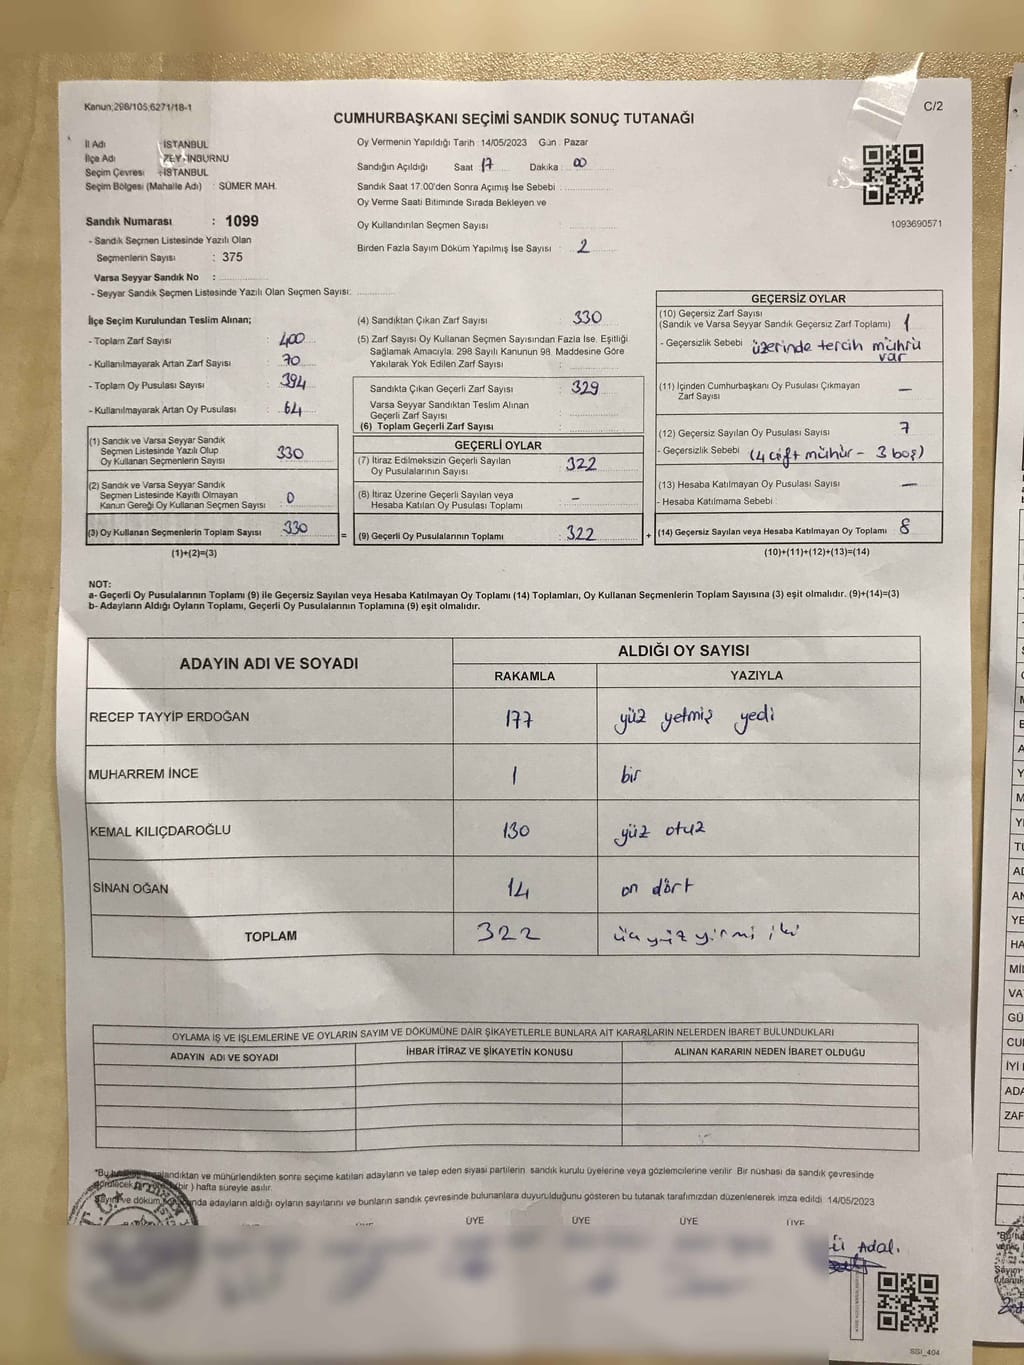 Kanun;298/105;6271/18-1
C/2
CUMHURBAŞKANI SEÇİMİ SANDIK SONUÇ TUTANAĞI
İl Adı İSTANBUL
İlçe Adı ZEYTİNBURNU
Seçim Çevresi İSTANBUL
Seçim Bölgesi (Mahalle Adı) : SÜMER MAH.
Sandık Numarası : 1099
- Sandık Seçmen Listesinde Yazılı Olan
Seçmenlerin Sayısı : 375
Varsa Seyyar Sandık No :
- Seyyar Sandık Seçmen Listesinde Yazılı Olan Seçmen Sayısı:
Oy Vermenin Yapıldığı Tarih : 14/05/2023 Gün : Pazar
Sandığın Açıldığı Saat 17 Dakika : 00
Sandık Saat 17.00'den Sonra Açımış İse Sebebi :
Oy Verme Saati Bitiminde Sırada Bekleyen ve
Oy Kullandırılan Seçmen Sayısı :
Birden Fazla Sayım Döküm Yapılmış İse Sayısı : 2
1093690571
İlçe Seçim Kurulundan Teslim Alınan;
- Toplam Zarf Sayısı : 400
- Kullanılmayarak Artan Zarf Sayısı : 70
- Toplam Oy Pusulası Sayısı : 394
- Kullanılmayarak Artan Oy Pusulası : 64
(1) Sandık ve Varsa Seyyar Sandık
Seçmen Listesinde Yazılı Olup
Oy Kullanan Seçmenlerin Sayısı : 330
(2) Sandık ve Varsa Seyyar Sandık
Seçmen Listesinde Kayıtlı Olmayan
Kanun Gereği Oy Kullanan Seçmen Sayısı : 0
(3) Oy Kullanan Seçmenlerin Toplam Sayısı : 330
(1)+(2)=(3)
(4) Sandıktan Çıkan Zarf Sayısı : 330
(5) Zarf Sayısı Oy Kullanan Seçmen Sayısından Fazla İse, Eşitliği
Sağlamak Amacıyla; 298 Sayılı Kanunun 98. Maddesine Göre
Yakılarak Yok Edilen Zarf Sayısı :
Sandıkta Çıkan Geçerli Zarf Sayısı : 329
Varsa Seyyar Sandıktan Teslim Alınan
Geçerli Zarf Sayısı :
(6) Toplam Geçerli Zarf Sayısı :
GEÇERLİ OYLAR
(7) İtiraz Edilmeksizin Geçerli Sayılan
Oy Pusulalarının Sayısı : 322
(8) İtiraz Üzerine Geçerli Sayılan veya
Hesaba Katılan Oy Pusulası Toplamı : -
= (9) Geçerli Oy Pusulalarının Toplamı : 322
GEÇERSİZ OYLAR
(10) Geçersiz Zarf Sayısı
(Sandık ve Varsa Seyyar Sandık Geçersiz Zarf Toplamı) 1
- Geçersizlik Sebebi : üzerinde tercih mührü
var
(11) İçinden Cumhurbaşkanı Oy Pusulası Çıkmayan
Zarf Sayısı : -
(12) Geçersiz Sayılan Oy Pusulası Sayısı : 7
- Geçersizlik Sebebi : (4 çift mühür - 3 boş)
(13) Hesaba Katılmayan Oy Pusulası Sayısı : -
- Hesaba Katılmama Sebebi :
+ (14) Geçersiz Sayılan veya Hesaba Katılmayan Oy Toplamı : 8
(10)+(11)+(12)+(13)=(14)
NOT:
a- Geçerli Oy Pusulalarının Toplamı (9) ile Geçersiz Sayılan veya Hesaba Katılmayan Oy Toplamı (14) Toplamları, Oy Kullanan Seçmenlerin Toplam Sayısına (3) eşit olmalıdır. (9)+(14)=(3)
b- Adayların Aldığı Oyların Toplamı, Geçerli Oy Pusulalarının Toplamına (9) eşit olmalıdır.
ADAYIN ADI VE SOYADI ALDIĞI OY SAYISI
RAKAMLA YAZIYLA
RECEP TAYYİP ERDOĞAN 177 yüz yetmiş yedi
MUHARREM İNCE 1 bir
KEMAL KILIÇDAROĞLU 130 yüz otuz
SİNAN OĞAN 14 on dört
TOPLAM 322 üçyüz yirmi iki
OYLAMA İŞ VE İŞLEMLERİNE VE OYLARIN SAYIM VE DÖKÜMÜNE DAİR ŞİKAYETLERLE BUNLARA AİT KARARLARIN NELERDEN İBARET BULUNDUKLARI
ADAYIN ADI VE SOYADI İHBAR İTİRAZ VE ŞİKAYETİN KONUSU ALINAN KARARIN NEDEN İBARET OLDUĞU
*Bu mühürlendikten sonra seçime katılan adayların ve talep eden siyasi partilerin sandık kurulu üyelerine veya gözlemcilerine verilir. Bir nüshası da sandık çevresinde
bir ) hafta süreyle asılır.
Sayım ve döküm adayların aldığı oyların sayılarını ve bunların sandık çevresinde bulunanlara duyurulduğunu gösteren bu tutanak tarafımızdan düzenlenerek imza edildi. 14/05/2023
ÜYE ÜYE ÜYE ÜYE ÜYE
Adal.
SSI_404